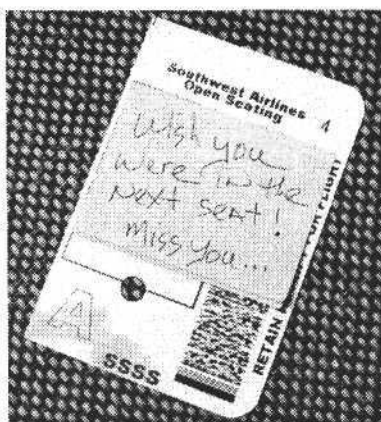 Southwest Airlines
Open Seating 4
Wish you
were in the
next seat!
Miss you...
A
SSSS
RETAIN FOR FLIGHT